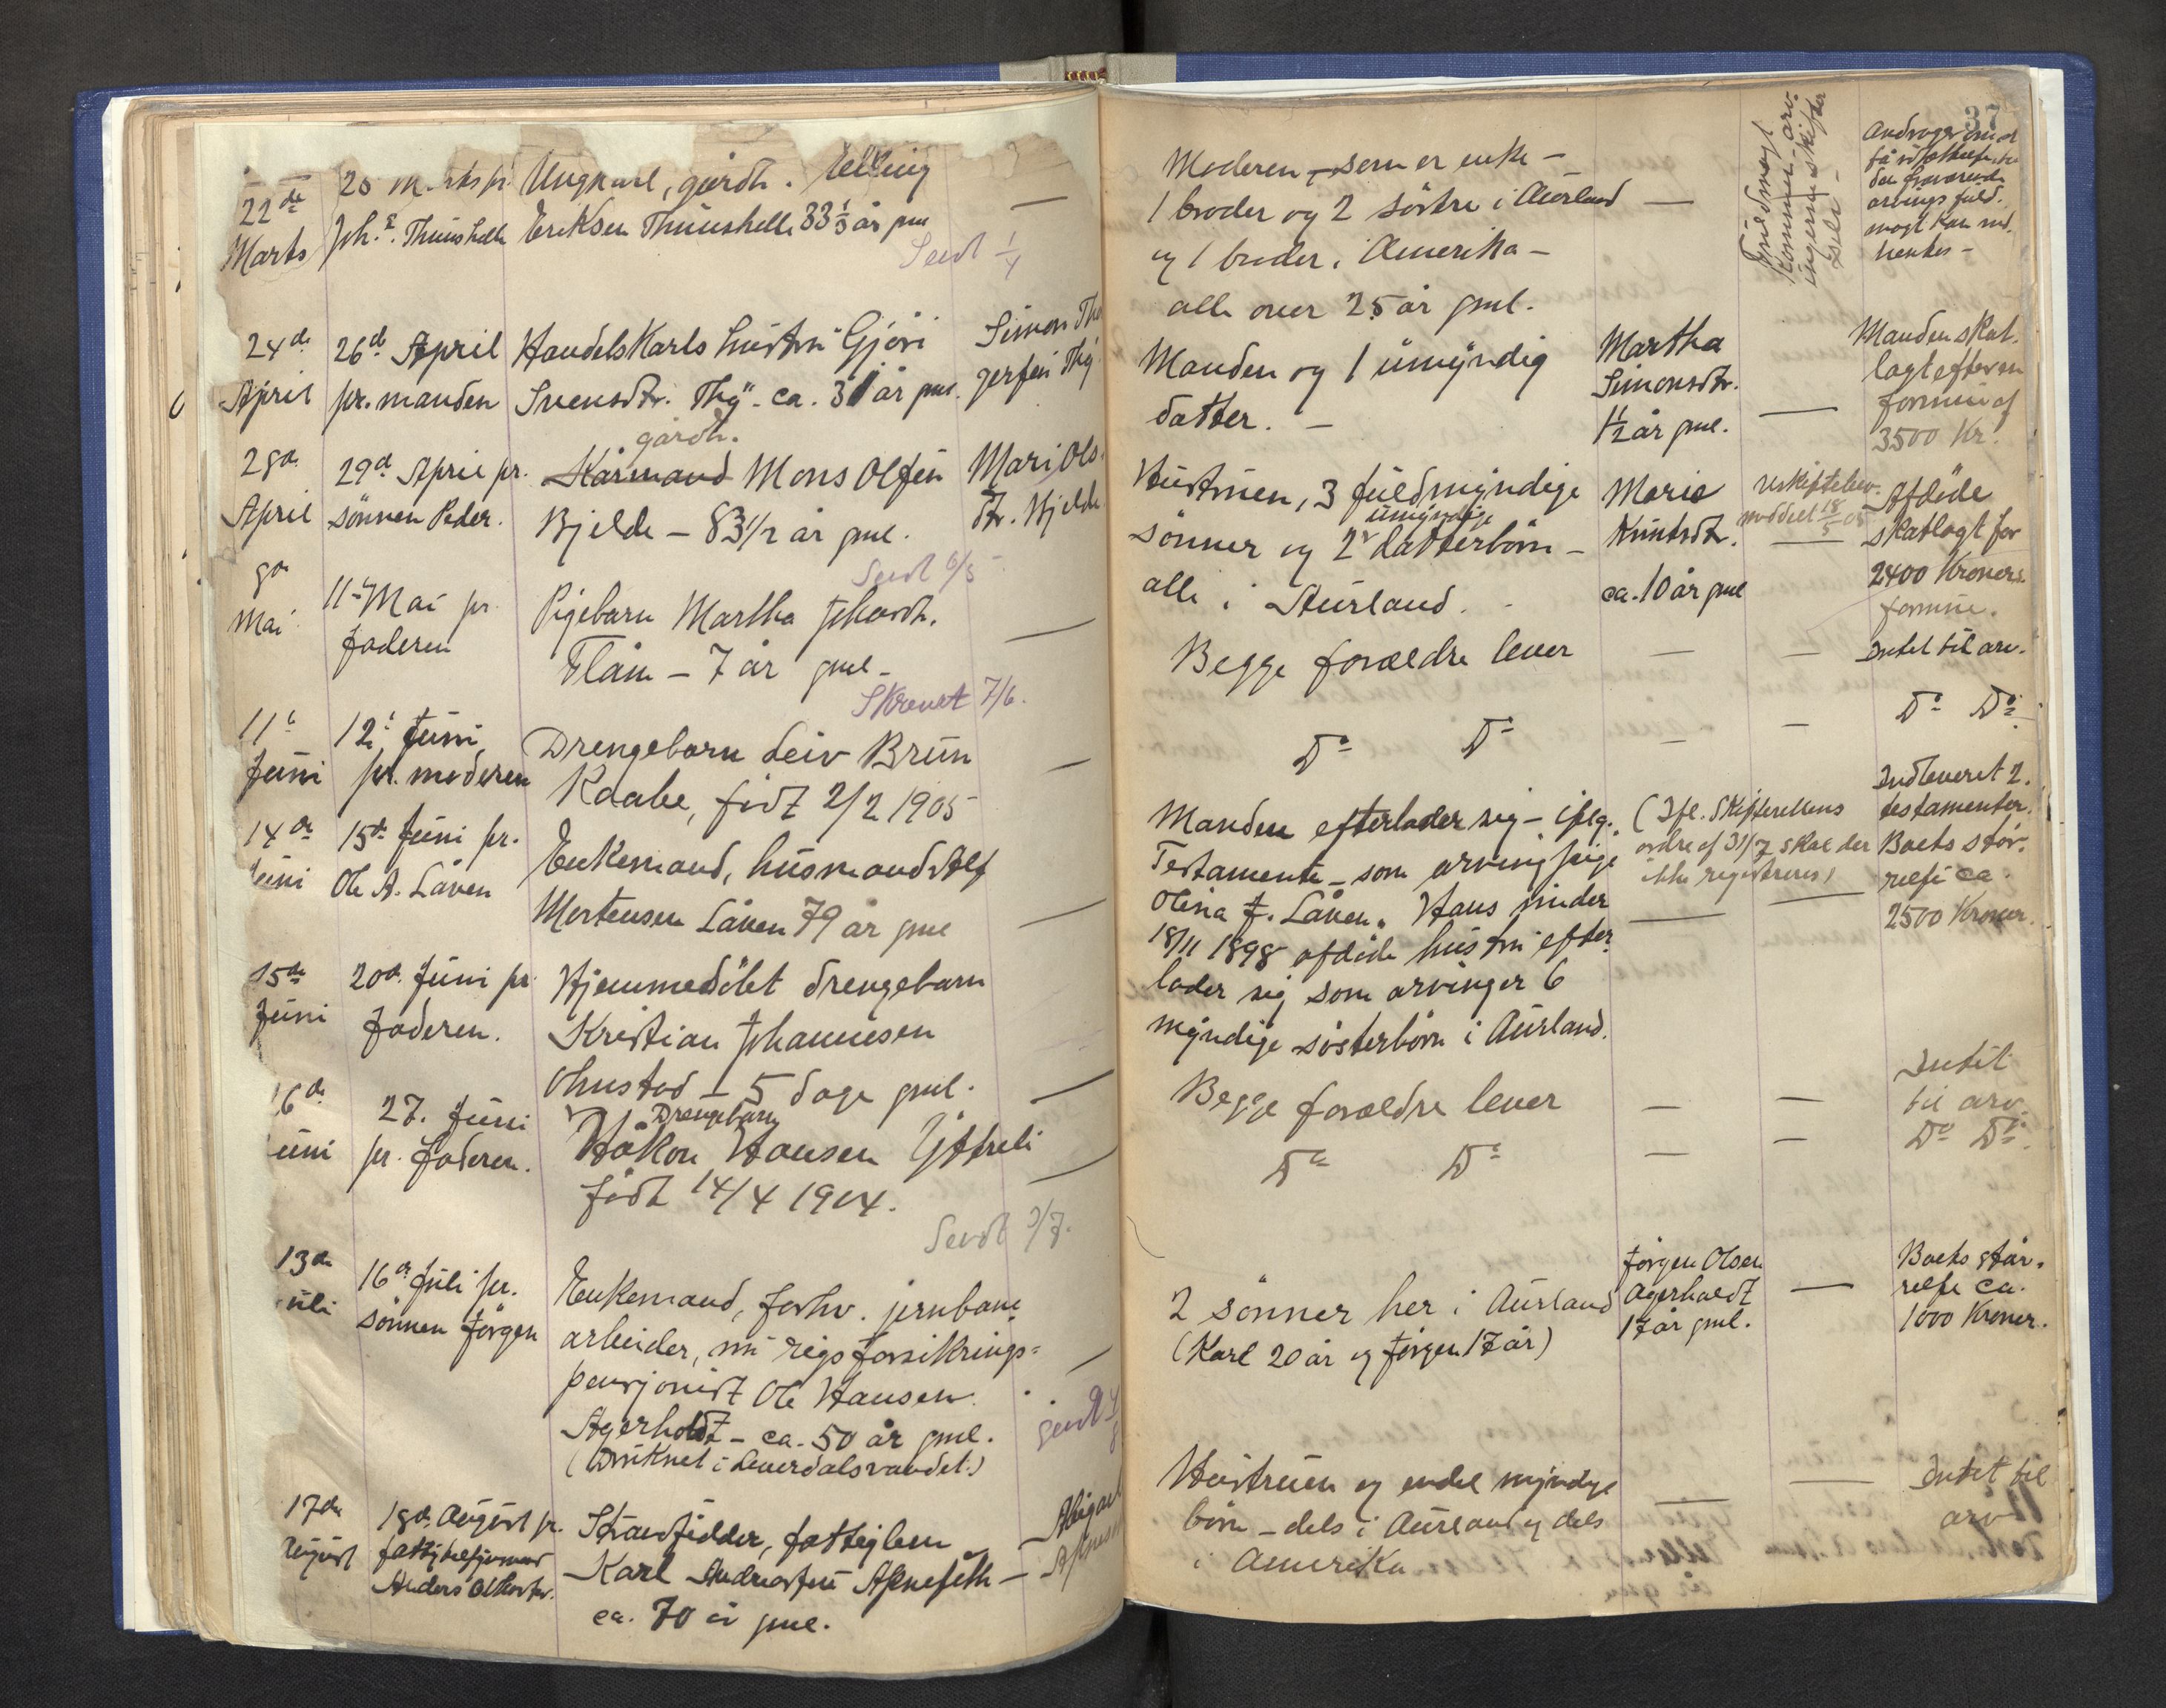 37
22de
Marts
pr.
Joh. E. Thunshelle
Ungkarl, gårdbr. Elling
Eriksen Thunshelle 33 1/3 år gml
—
Sendt 1/4
Moderen – som er enke –
1 broder og 2 søstre i Aurland
og 1 broder i Amerika –
alle over 25 år gml.
—
Fuldmagt
Androger om at
få
fuld-
magt kan ind-
hentes –
24de
April
26de April
pr. manden
Handelskarls hustru Gjøri
Svensdtr. Thy – ca. 31 år gml.
Simon
Manden og 1 umyndig
datter. –
Martha
Simonsdtr.
1½ år gml.
—
Manden skat-
lagt efter en
formue af
3500 Kr.
28de
April
29de April pr.
sønnen Peder.
gårdb.
Kårmand Mons Olsen
Bjelde – 83 1/2 år gml.
Mari Ols-
dtr. Bjelde
Sendt 6/5
Hustruen, 3 fuldmyndige
umyndige
sønner og 2 datterbørn –
alle i Aurland.
Marie
Knutsdtr.
ca. 10 år gml
—
Afdøde
skatlagt for
2400 Kroners
formue.
9de
Mai
11te Mai pr.
faderen
Pigebarn Martha
Flåm – 7 år gml –
—
Skrevet 7/6.
Begge forældre lever
—
—
Intet til arv.
11te
Juni
12te Juni
pr. moderen
Drengebarn Leiv Brun
Kaabe, født 2/2 1905
—
Do Do
—
—
Do Do.
14de
Juni
15de Juni pr.
Ole A. Låven
Enkemand, husmand
Mortensen Låven 79 år gml
—
Manden efterlader sig – iflg.
Testamente – som arving pige
Olina J. Låven. Hans under
18/11 1898 afdøde hustru efter-
lader sig som arvinger 6
myndige søsterbørn i Aurland.
(Ifl. Skifterettens
ordre af 31/7 skal der
ikke registreres)
—
—
Indleveret 2
testamenter.
Boets stør-
relse ca.
2500 Kroner.
15de
Juni
20de Juni pr.
faderen.
Hjemmedøbt drengebarn
Kristian Johannesen
Ohnstad – 5 dage gml.
—
Begge forældre lever
—
—
Intet
til arv.
16de
uni
27. Juni
pr. faderen.
Drengebarn
Håkon Hansen Yttreli
født 14/4 1904.
—
Sendt 3/7.
Do Do
—
—
Do Do.
13de
uli
16de Juli pr.
sønnen Jørgen
Enkemand, forhv. jernbane-
arbeider, nu rigsforsikrings-
pensjonist Ole Hansen
Agerholdt – ca. 50 år gml.
(Druknet i Leverdalsvandet.)
—
sendt 4/8
2 sønner her i Aurland
(Karl 20 år og Jørgen 17 år)
Jørgen Olsen
Agerholdt
17 år gml.
—
Boets stør-
relse ca.
1000 Kroner.
17de
ugust
18de August pr.
Anders
fattiglem
Karl
ca. 70 år gml.
Hustruen og endel myndige
børn – dels i Aurland og dels
i Amerika
—
—
Intet til
arv